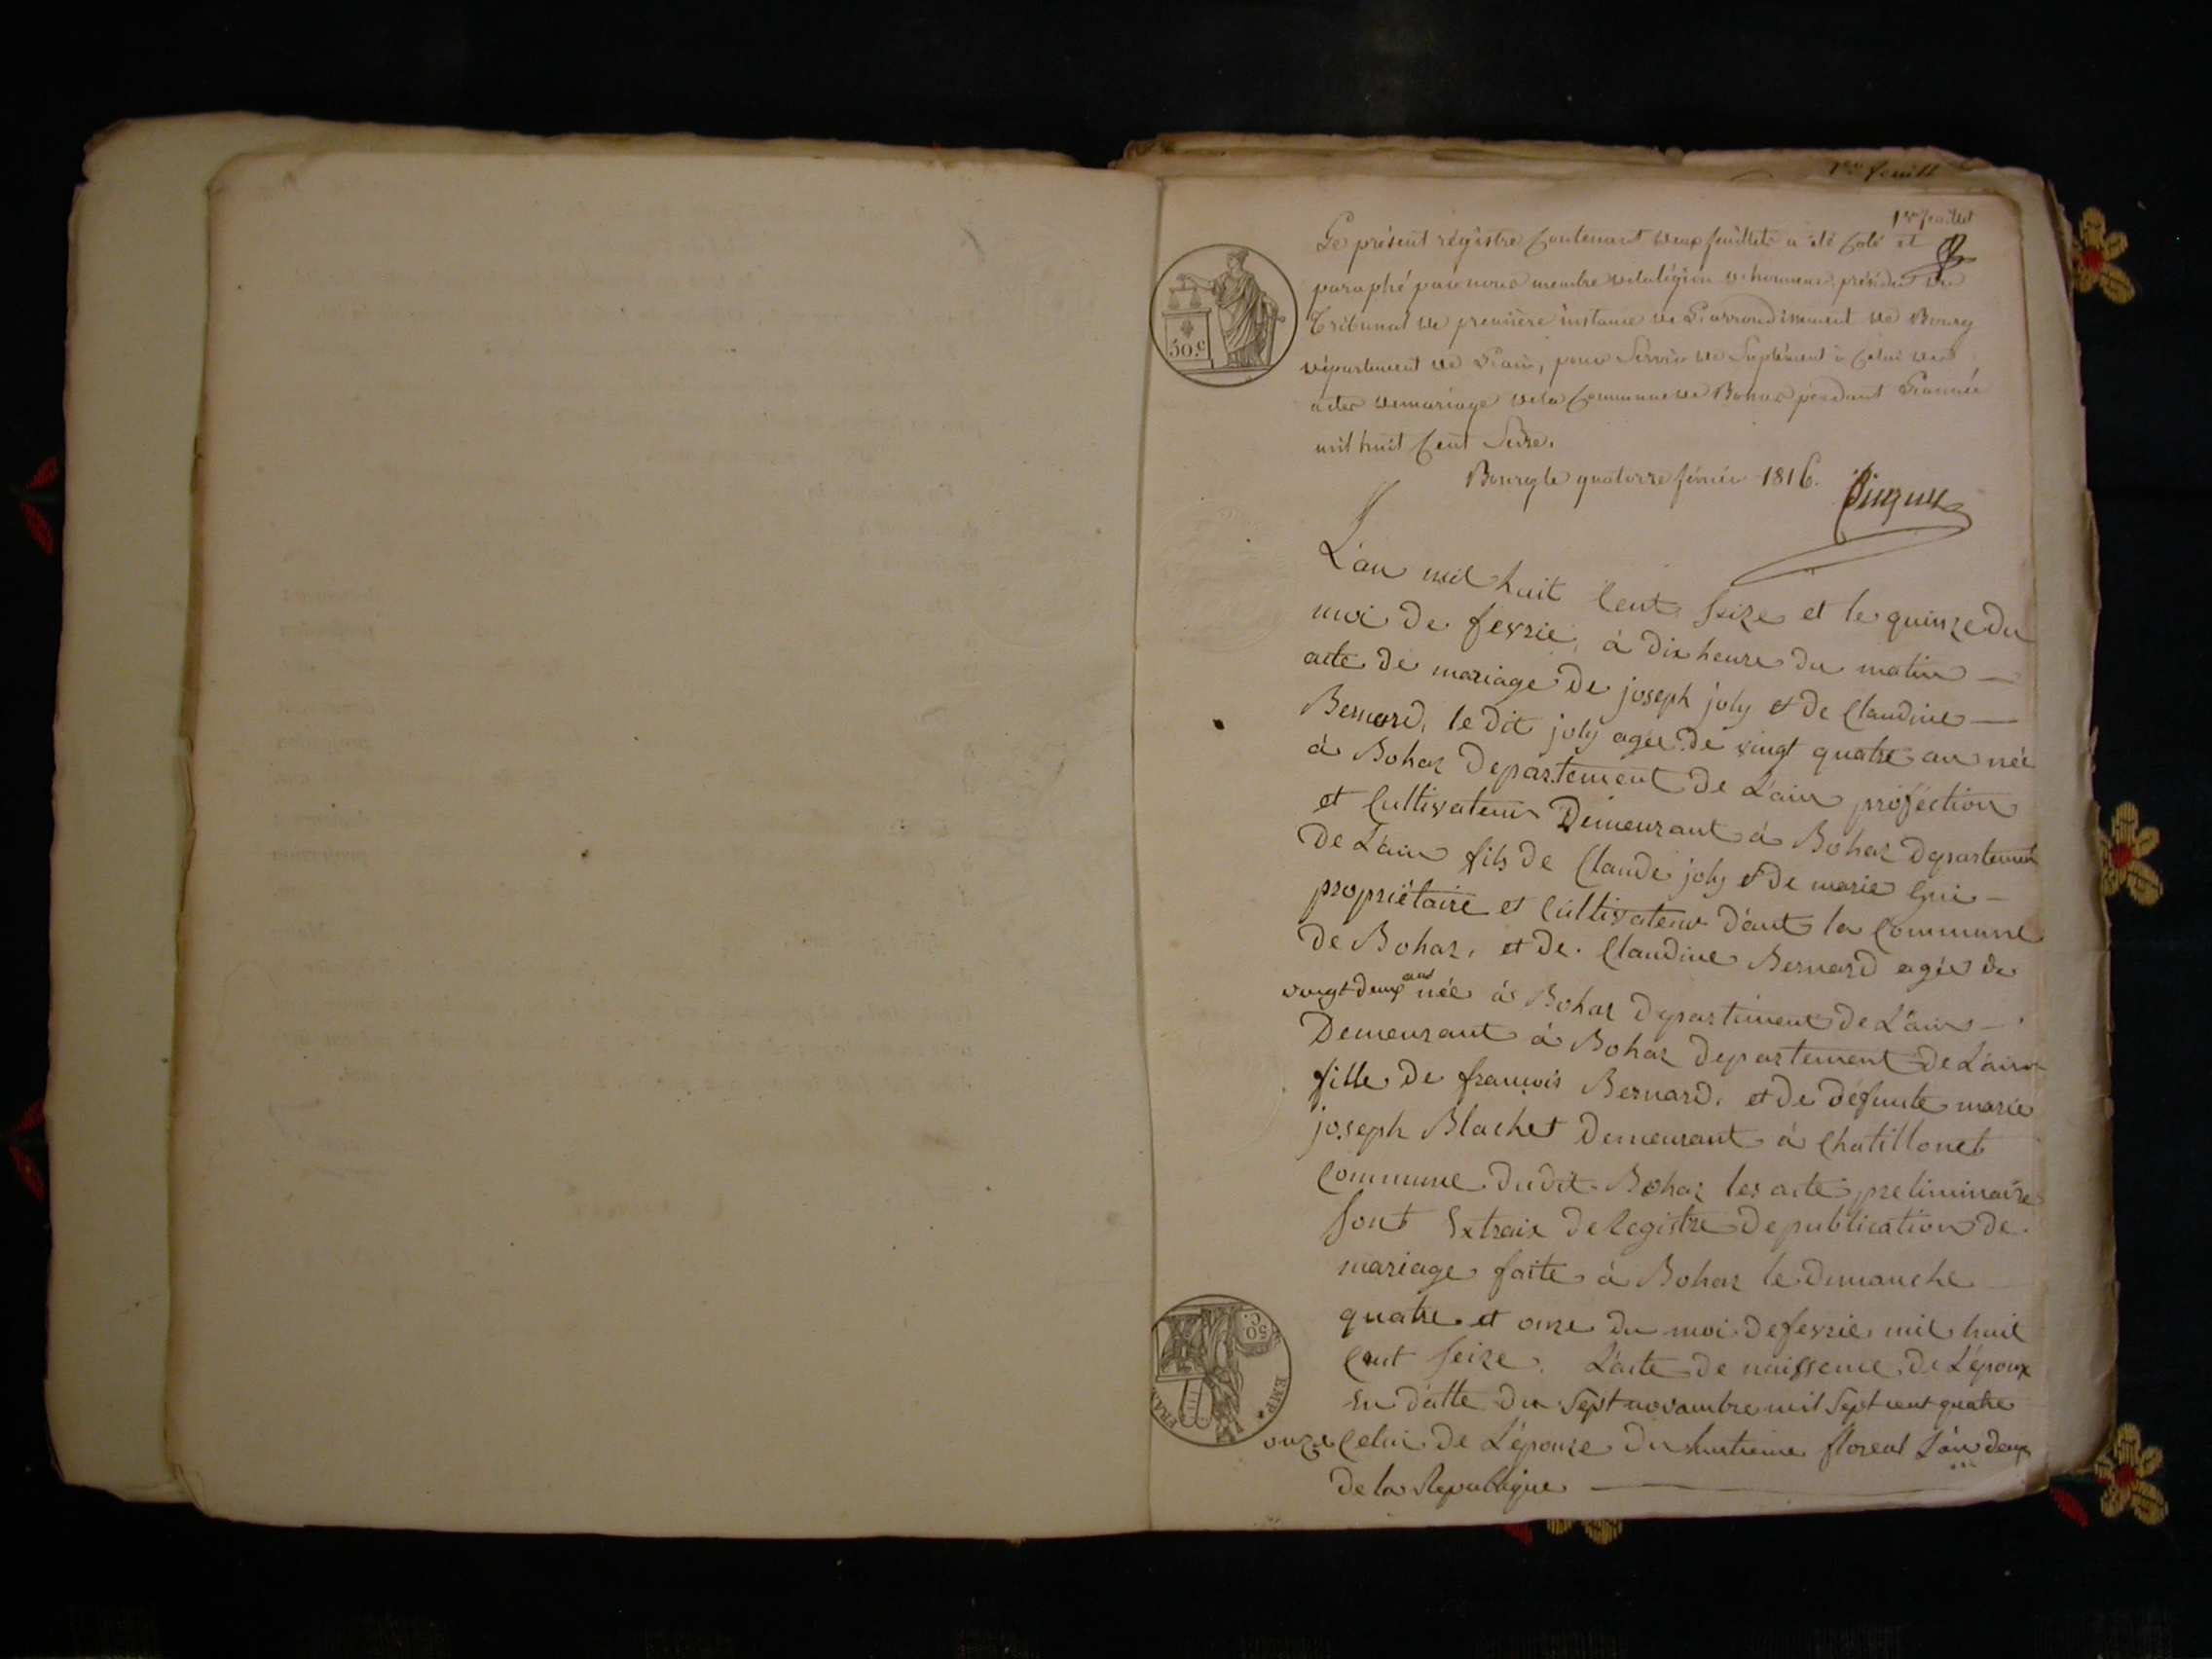 1er feuillet
Le présent régistre Contenant deux feuillets a été Coté et
paraphé par nous membre de la légion d'honneur, président du
Tribunal de première instance de L'arrondissement de Bourg
département de L'ain, pour Servir de Suplément à Celui des
actes de mariage de la Commune de Bohas pendant L'année
mil huit Cent Seize.
Bourg le quatorze février 1816.
50.c
L'an mil huit Cent Seize et le quinze du
moi de fevrie, à dix heure du matin
acte de mariage de joseph joly et de Claudine
Bernard, le dit joly agée de vingt quatre an née
à Bohaz Departement de L'ain proféction
et Cultivateur Demeurant à Bohaz Departement
De L'ain fils de Claude joly et de marie
propriétaire et Cultivateur d'ant la Commune
de Bohaz, et de Claudine Bernard agée de
vingt deux ans née à Bohaz Departement de L'ain
Demeurant à Bohaz departement de L'ain
fille de francois Bernard, et de défunte marie
joseph Blachet Demeurant à Chatillonet
Commune dudit Bohaz les acte preliminaire
Sont Extraix de Registre de publication de
mariage faite à Bohaz le dimanche
quatre et onze du moi de fevrie mil huit
Cent Seize. L'acte de naissence de L'époux
En datte du Sept novambre mil Sept cent quatre
onze Celui de L'épouze du huitieme floreal L'an deux
de la Republique
50 C.
EMP.
FRAN